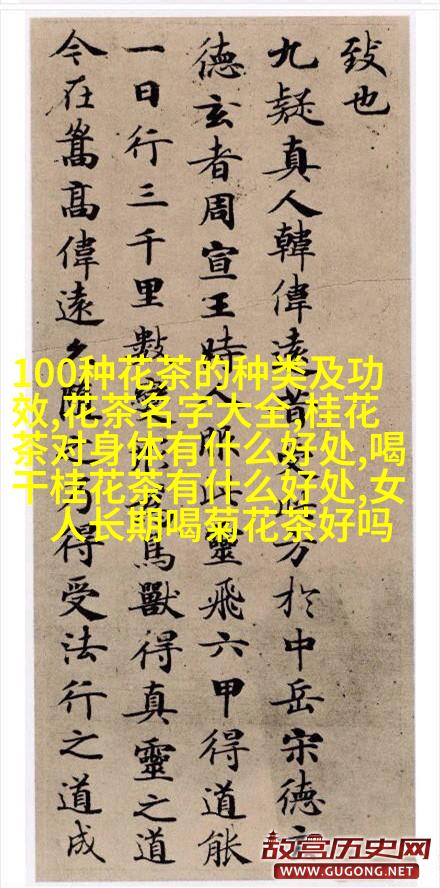 致也
九疑真人韓偉遠昔方於中岳宋德
德玄者周宣王時人服此靈飛六甲得道能
一日行三千里數變鳥獸得真靈之道
今在嵩高偉遠久隨之乃得受法行之道成
100种花茶的种类及功
效,花茶名字大全,桂花
茶对身体有什么好处,喝
干桂花茶有什么好处,女
人长期喝菊花茶好吗
故宫历史网
WWW.GUGONG.NET